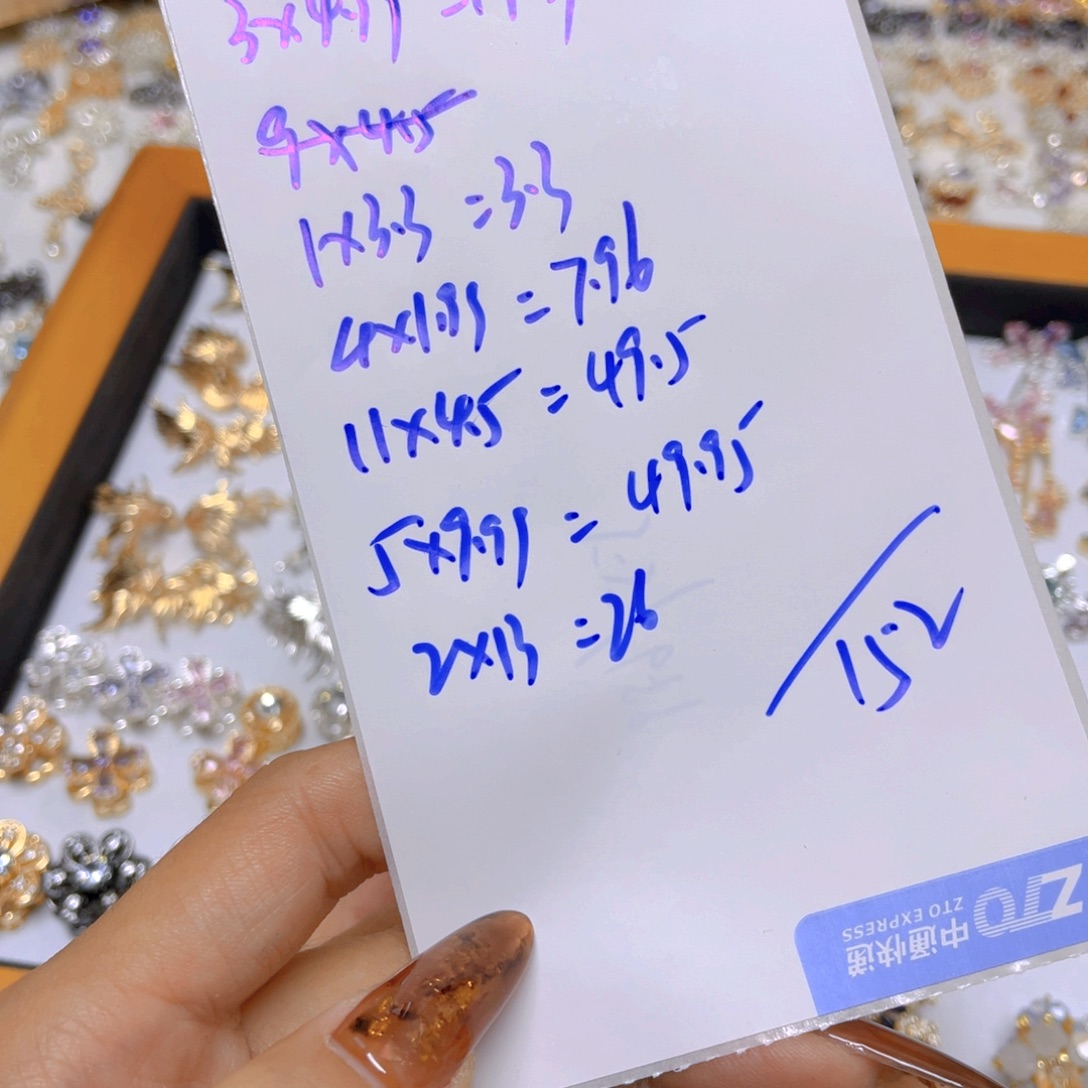 1×3.3 =3.3
4×1.99 =7.96
11×4.5 =49.5
5×9.99 =49.95
2×13 =26
15.2
ZTO
中通快递
ZTO EXPRESS